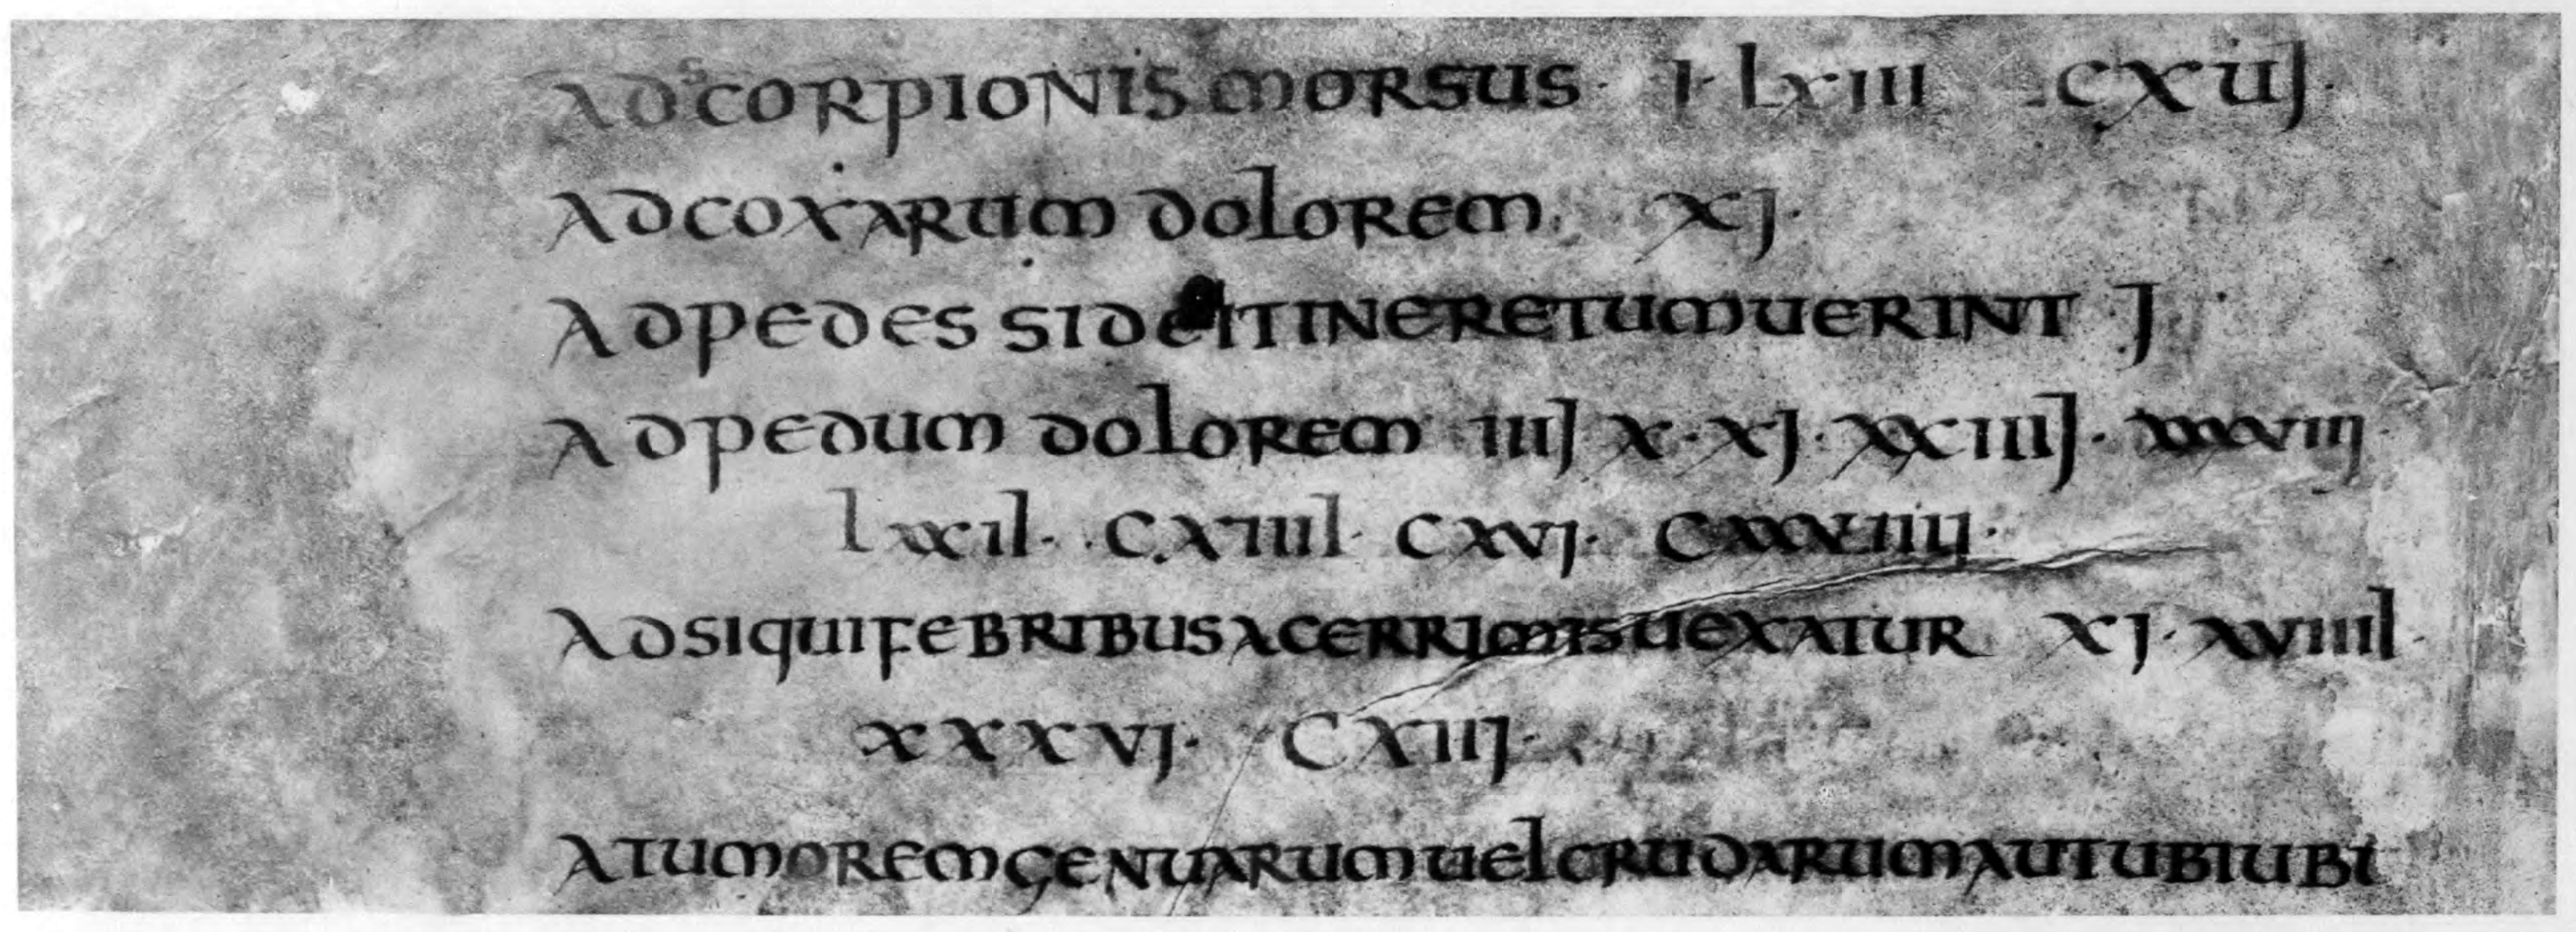 ADSCORPIONIS MORSUS · I · LXIII · CXUI ·
ADCOXARUM DOLOREM · XI ·
ADPEDES SIDEITINERETUMUERINT I ·
ADPEDUM DOLOREM IIII X · XI · XXIIII · XXXVIII ·
LXXII · CXIIII · CXVI · CXXXVIIII ·
ADSIQUIFEBRIBUSACERRIMISUEXATUR XI · XVIIII ·
XXXVI · CXIII ·
ATUMOREMGENUARUMUELCRUDARUMAUTUBIUBI